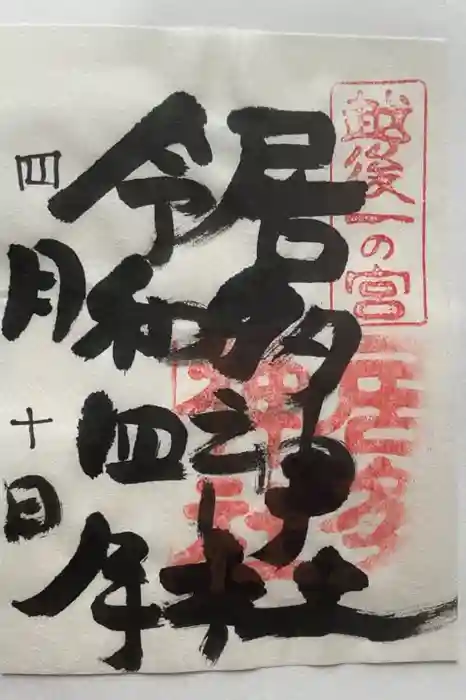 越後一の宮
居多神社
居多神社
令和四年
四月十日